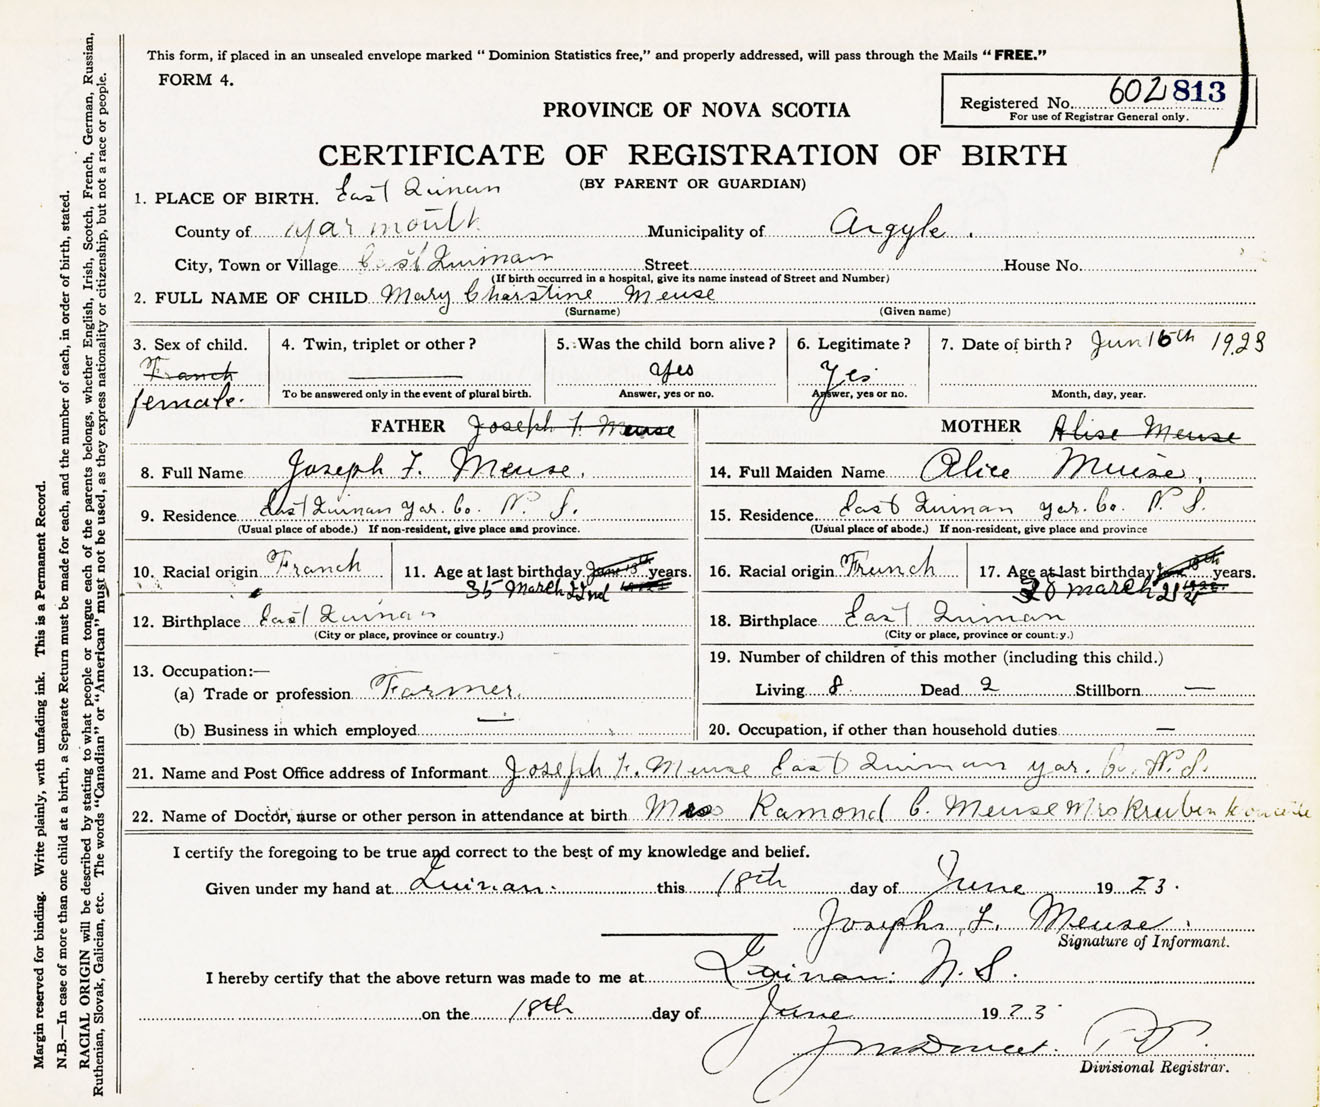 This form, if placed in an unsealed envelope marked "Dominion Statistics free," and properly addressed, will pass through the Mails "FREE."
FORM 4.
Registered No. 602813
For use of Registrar General only.
PROVINCE OF NOVA SCOTIA
CERTIFICATE OF REGISTRATION OF BIRTH
(BY PARENT OR GUARDIAN)
1. PLACE OF BIRTH. East Quinan
County of Yarmouth Municipality of Argyle.
City, Town or Village East Quinan Street House No.
(If birth occurred in a hospital, give its name instead of Street and Number)
2. FULL NAME OF CHILD Mary Charstine Meuse
(Surname) (Given name)
3. Sex of child. 4. Twin, triplet or other? 5. Was the child born alive? 6. Legitimate? 7. Date of birth? Jun 16th 1923
Franch yes Yes
female. To be answered only in the event of plural birth. Answer, yes or no. Answer, yes or no. Month, day, year.
FATHER Joseph F. Meuse MOTHER Alise Meuse
8. Full Name Joseph F. Meuse. 14. Full Maiden Name Alice Muise,
9. Residence East Quinan Yar. Co. N. S. 15. Residence East Quinan Yar. Co. N. S.
(Usual place of abode.) If non-resident, give place and province. (Usual place of abode.) If non-resident, give place and province
10. Racial origin Franch 11. Age at last birthday years. 16. Racial origin Frunch 17. Age at last birthday years.
35 March 22nd March 21st
12. Birthplace East Quinan 18. Birthplace East Quinan
(City or place, province or country.) (City or place, province or country.)
13. Occupation:— 19. Number of children of this mother (including this child.)
(a) Trade or profession Farmer. Living 8 Dead 2 Stillborn —
(b) Business in which employed — 20. Occupation, if other than household duties —
21. Name and Post Office address of Informant Joseph F. Meuse East Quinan Yar. Co. N. S.
22. Name of Doctor, nurse or other person in attendance at birth Mrs Ramond C. Meuse Mrs Kreuben
I certify the foregoing to be true and correct to the best of my knowledge and belief.
Given under my hand at Quinan. this 18th day of June 1923.
Joseph F. Meuse.
Signature of Informant.
I hereby certify that the above return was made to me at Quinan. N. S.
on the 18th day of June 1923
J M Doucet. P. P.
Divisional Registrar.
Margin reserved for binding. Write plainly, with unfading ink. This is a Permanent Record.
N.B.—In case of more than one child at a birth, a Separate Return must be made for each, and the number of each, in order of birth, stated.
RACIAL ORIGIN will be described by stating to what people or tongue each of the parents belongs, whether English, Irish, Scotch, French, German, Russian,
Ruthenian, Slovak, Galician, etc. The words "Canadian" or "American" must not be used, as they express nationality or citizenship, but not a race or people.